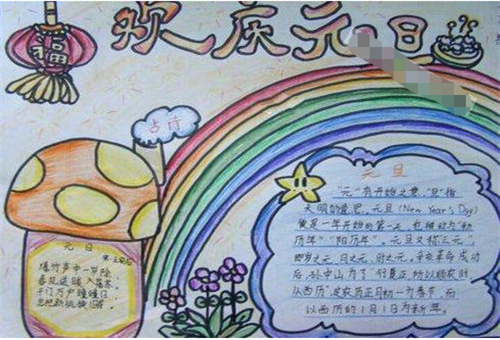 欢庆元旦
福
古诗
元日
宋·王安石
爆竹声中一岁除
春风送暖入屠苏.
千门万户曈曈日
总把新桃换旧符.
元旦
"元"有开始之意,"旦"指
天明的意思. 元旦(New Year's Day)
便是一年开始的第一天,也被称为"新
历年""阳历年". 元旦又称"三元",
即岁之元、月之元、时之元. 辛亥革命成功
后,孙中山为了"行夏正,所以顺农时
从西历",定农历正月初一为春节,而
以西历的1月1日为新年.